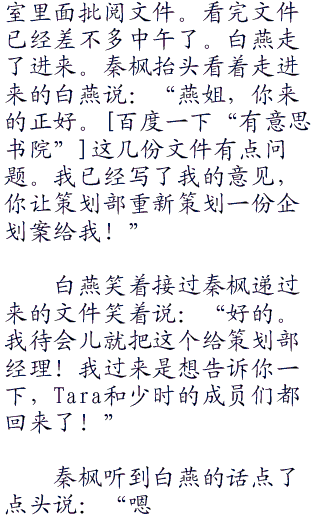 室里面批阅文件。看完文件
已经差不多中午了。白燕走
了进来。秦枫抬头看着走进
来的白燕说：“燕姐，你来
的正好。[百度一下“有意思
书院”]这几份文件有点问
题。我已经写了我的意见，
你让策划部重新策划一份企
划案给我！”
白燕笑着接过秦枫递过
来的文件笑着说：“好的。
我待会儿就把这个给策划部
经理！我过来是想告诉你一
下，Tara和少时的成员们都
回来了！”
秦枫听到白燕的话点了
点头说：“嗯